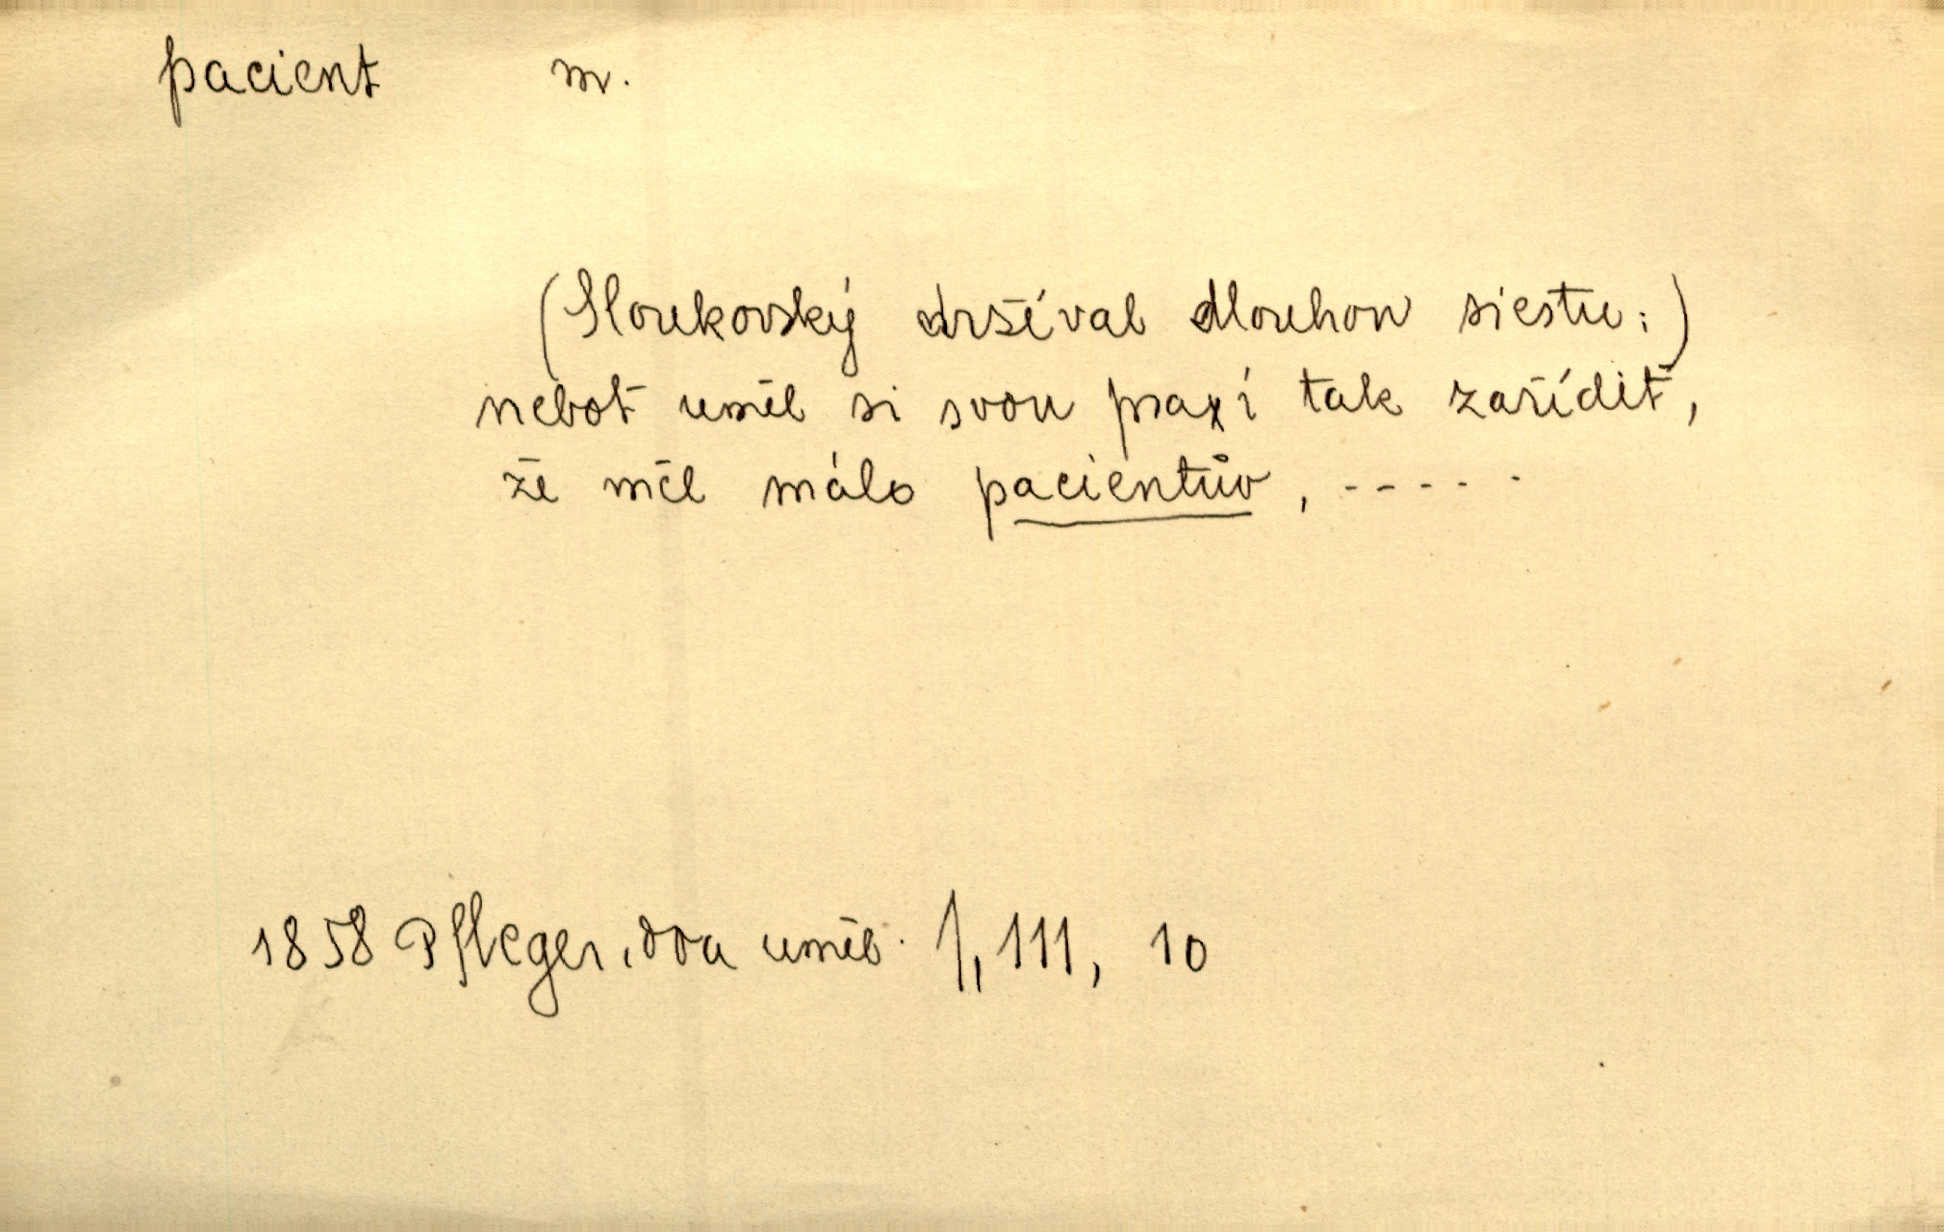 pacient m.
(Sloukovský držíval dlouhou siestu:)
neboť uměl si svou praxí tak zaříditi,
že měl málo pacientův, - - - - -
1858 Pfleger, dva uměl. I, 111, 10